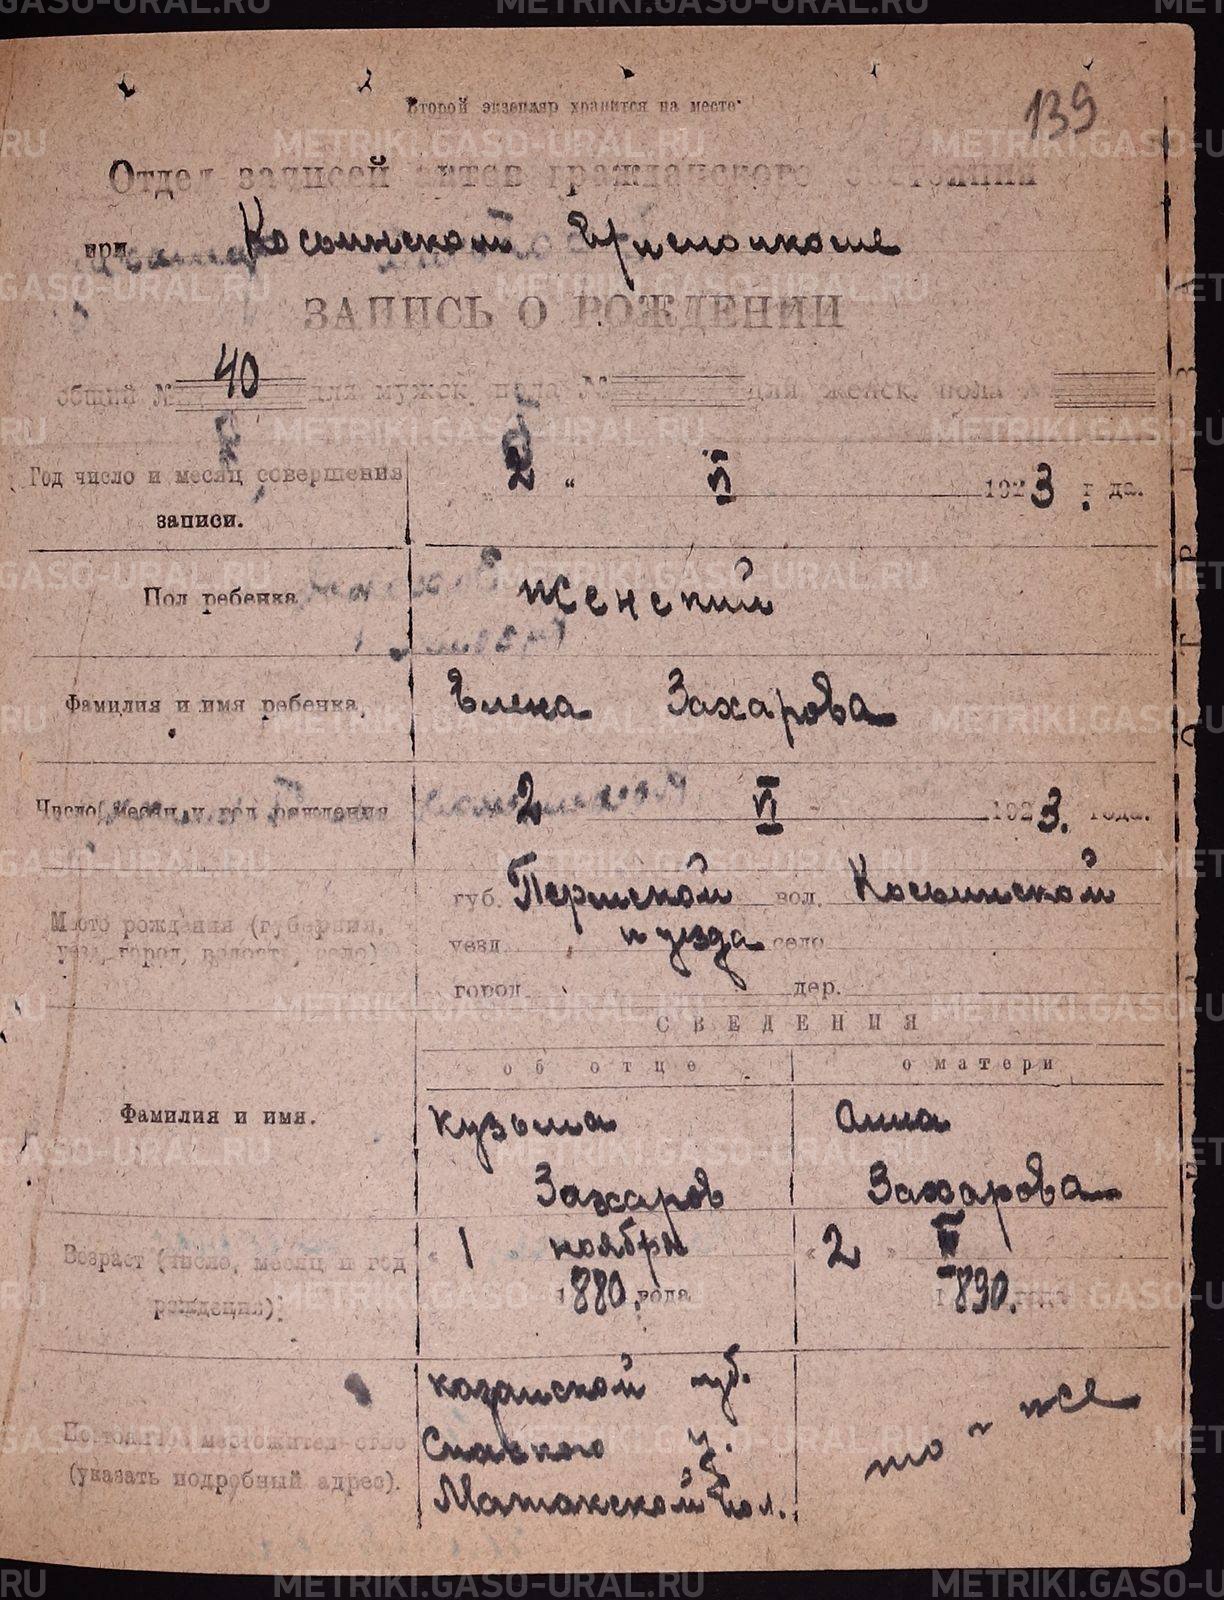 METRIKI.GASO-URAL.RU
Второй экземпляр хранится на месте
139
Отдел записей актов гражданского состояния
при Косьинском
ЗАПИСЬ О РОЖДЕНИИ
общий № 40 для мужск. пола № для женск. пола №
Год число и месяц совершения записи.
" 2 " VI 1923 года.
Пол ребенка
Женский
Фамилия и имя ребенка
Елена Захарова
Число, месяц и год рождения
2 VI 1923. года.
Место рождения (губерния, уезд, город, волость, село)
губ. Пермской вол. Косьинской
уезд и уезда село
город дер.
СВЕДЕНИЯ
об отце о матери
Фамилия и имя.
Кузьма Захаров
Анна Захарова
Возраст (число, месяц и год рождения)
" 1 ноября 1880. года
" 2 " 1890. года
Постоянное местожительство (указать подробный адрес).
Казанской губ.
Спаского у.
Матакской вол.
то же